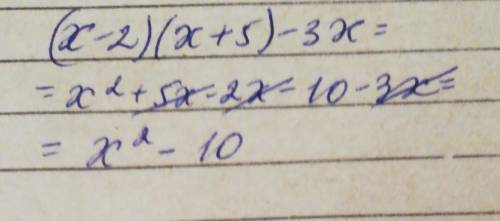 (x-2)(x+5)-3x=
=x²+5x-2x-10-3x=
=x²-10